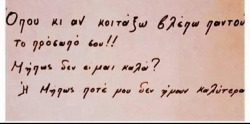 Όπου κι αν κοιτάξω βλέπω παντού
το πρόσωπό σου!!
Μήπως δεν είμαι καλά?
Ή Μήπως ποτέ μου δεν ήμουν καλύτερα